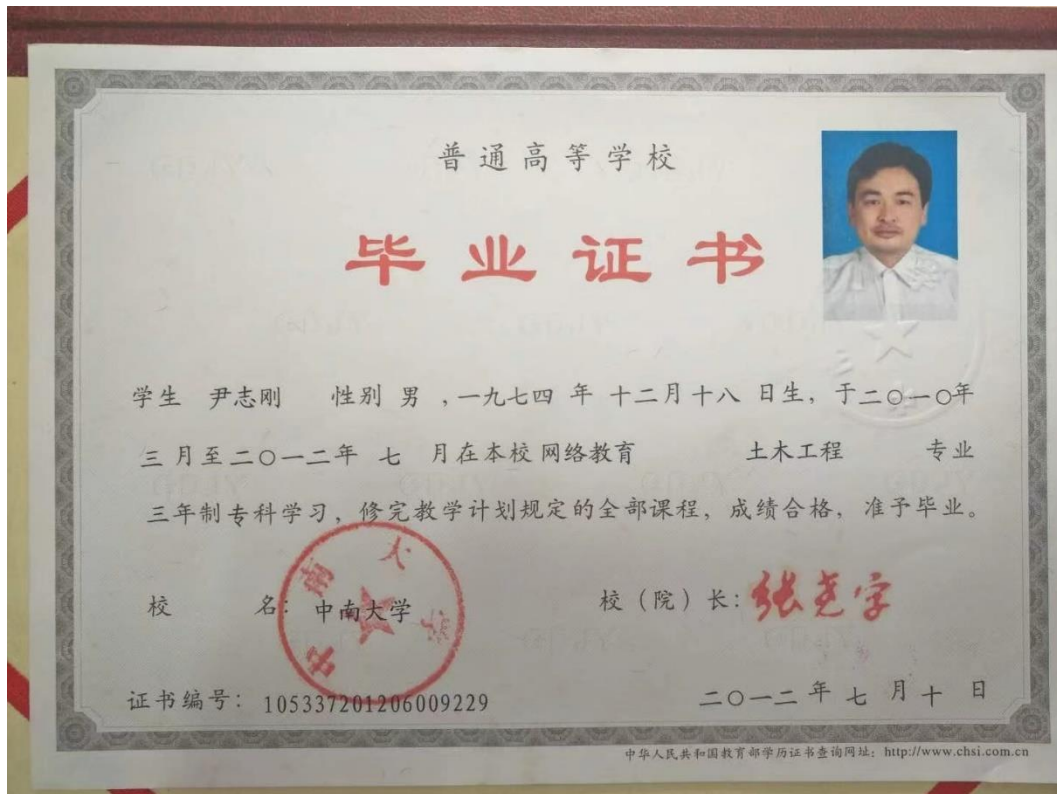 普通高等学校
毕业证书
学生 尹志刚 性别 男 ,一九七四 年 十二月十八 日生,于二〇一〇年
三 月至二〇一二年 七 月在本校 网络教育 土木工程 专业
三年制专科学习,修完教学计划规定的全部课程,成绩合格,准予毕业。
校 名: 中南大学 校(院)长: 张尧学
中南大学
证书编号: 105337201206009229 二〇一二 年 七 月 十 日
中华人民共和国教育部学历证书查询网址: http://www.chsi.com.cn